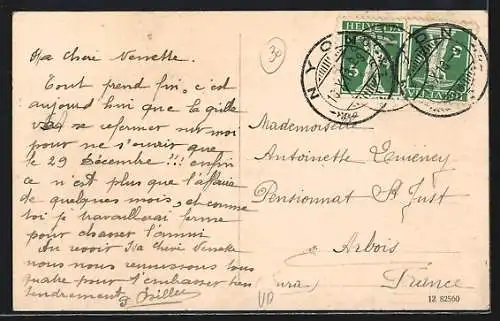 Ma chère Nénette.
Tout prend fin, c'est
aujourd'hui que la grille
va se refermer sur moi
pour ne s'ouvrir que
le 29 Décembre !!! enfin
ce n'est plus que l'affaire
de quelques mois, et comme
toi je travaillerai ferme
pour chasser l'ennui
Au revoir Ma chère Nenette
nous nous réunissons tous
quatre pour t'embasser bien
tendrement
30
NYON
HELVETIA
5
NYON
HELVETIA
5
Mademoiselle
Antoinette
Pensionnat St Just
Arbois
France
(Jura)
12 82560